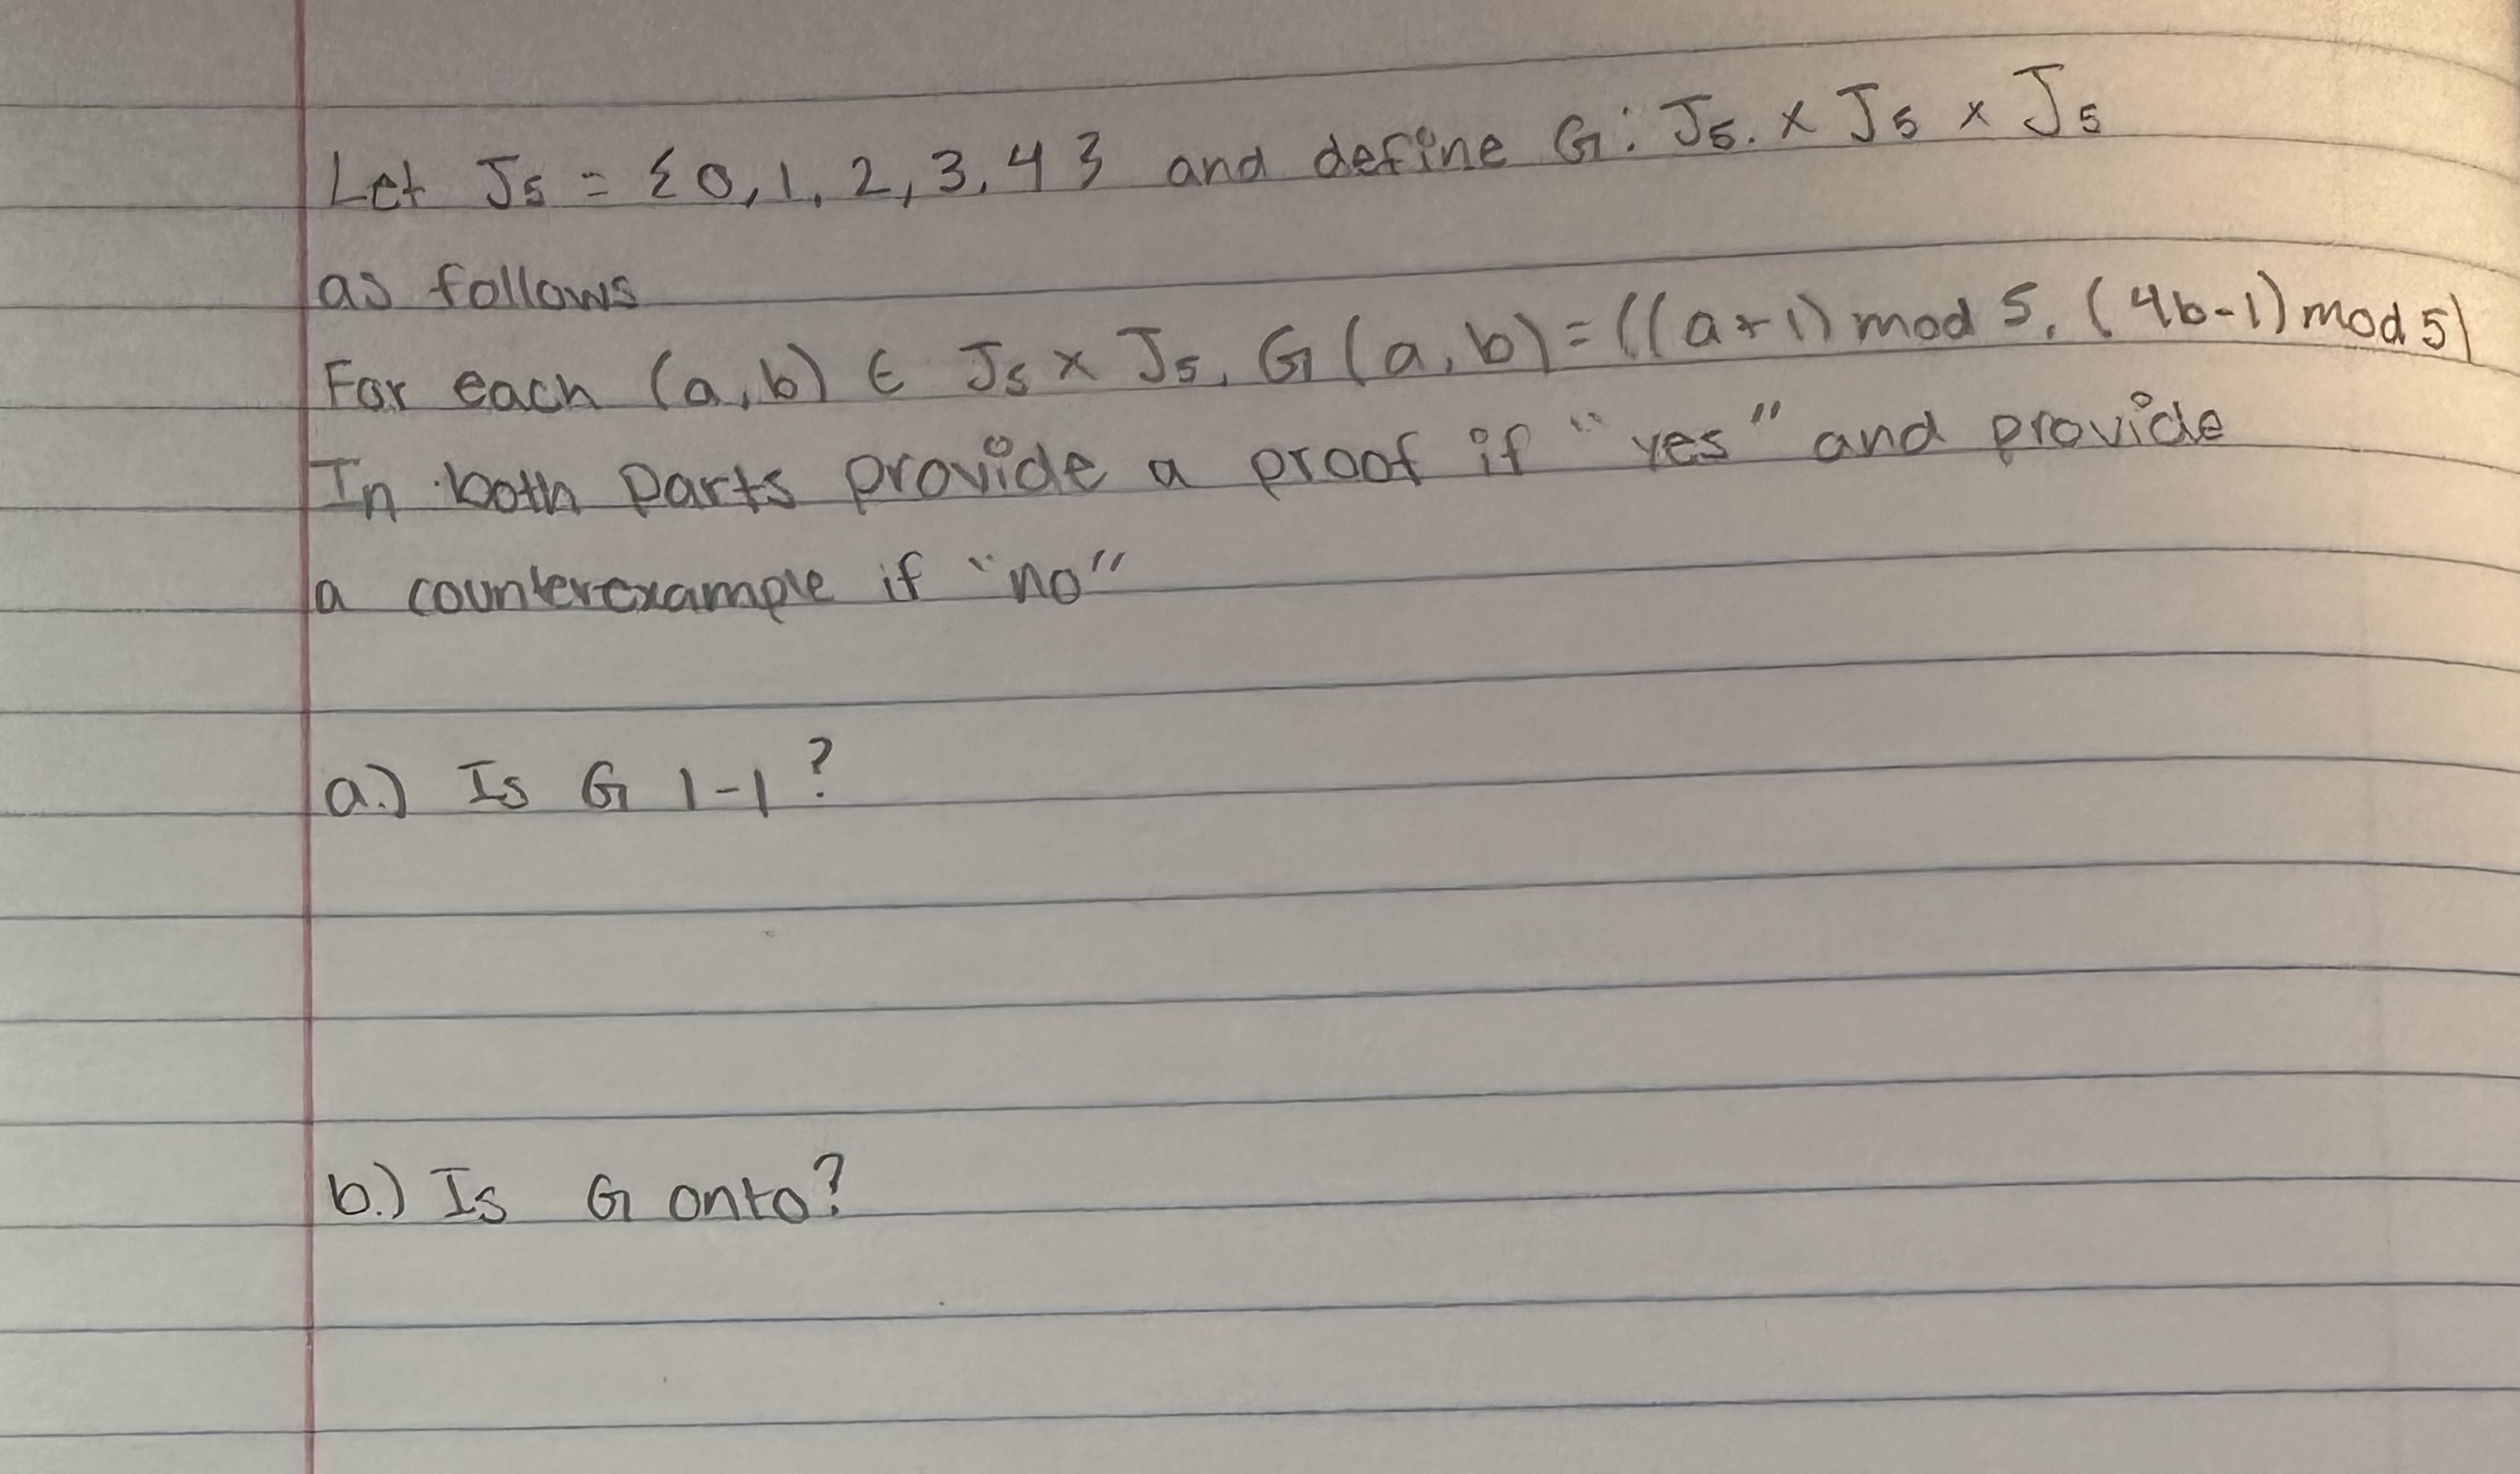 Let J₅ = {0, 1, 2, 3, 4} and define G: J₅. × J₅ × J₅
as follows
For each (a, b) ∈ J₅ × J₅, G(a, b) = ((a+1) mod 5, (4b-1) mod 5)
In both parts provide a proof if "yes" and provide
a counterexample if "no"
a.) Is G 1-1?
b.) Is G onto?